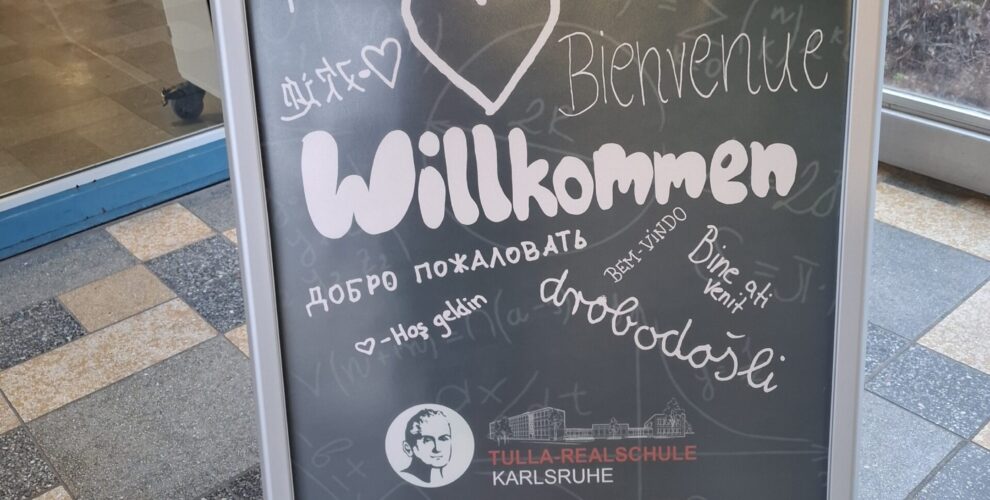 Bienvenue
Willkommen
ДОБРО ПОЖАЛОВАТЬ
BEM-VINDO
Bine ati
venit
-Hoş geldin
drobodošli
TULLA-REALSCHULE
KARLSRUHE